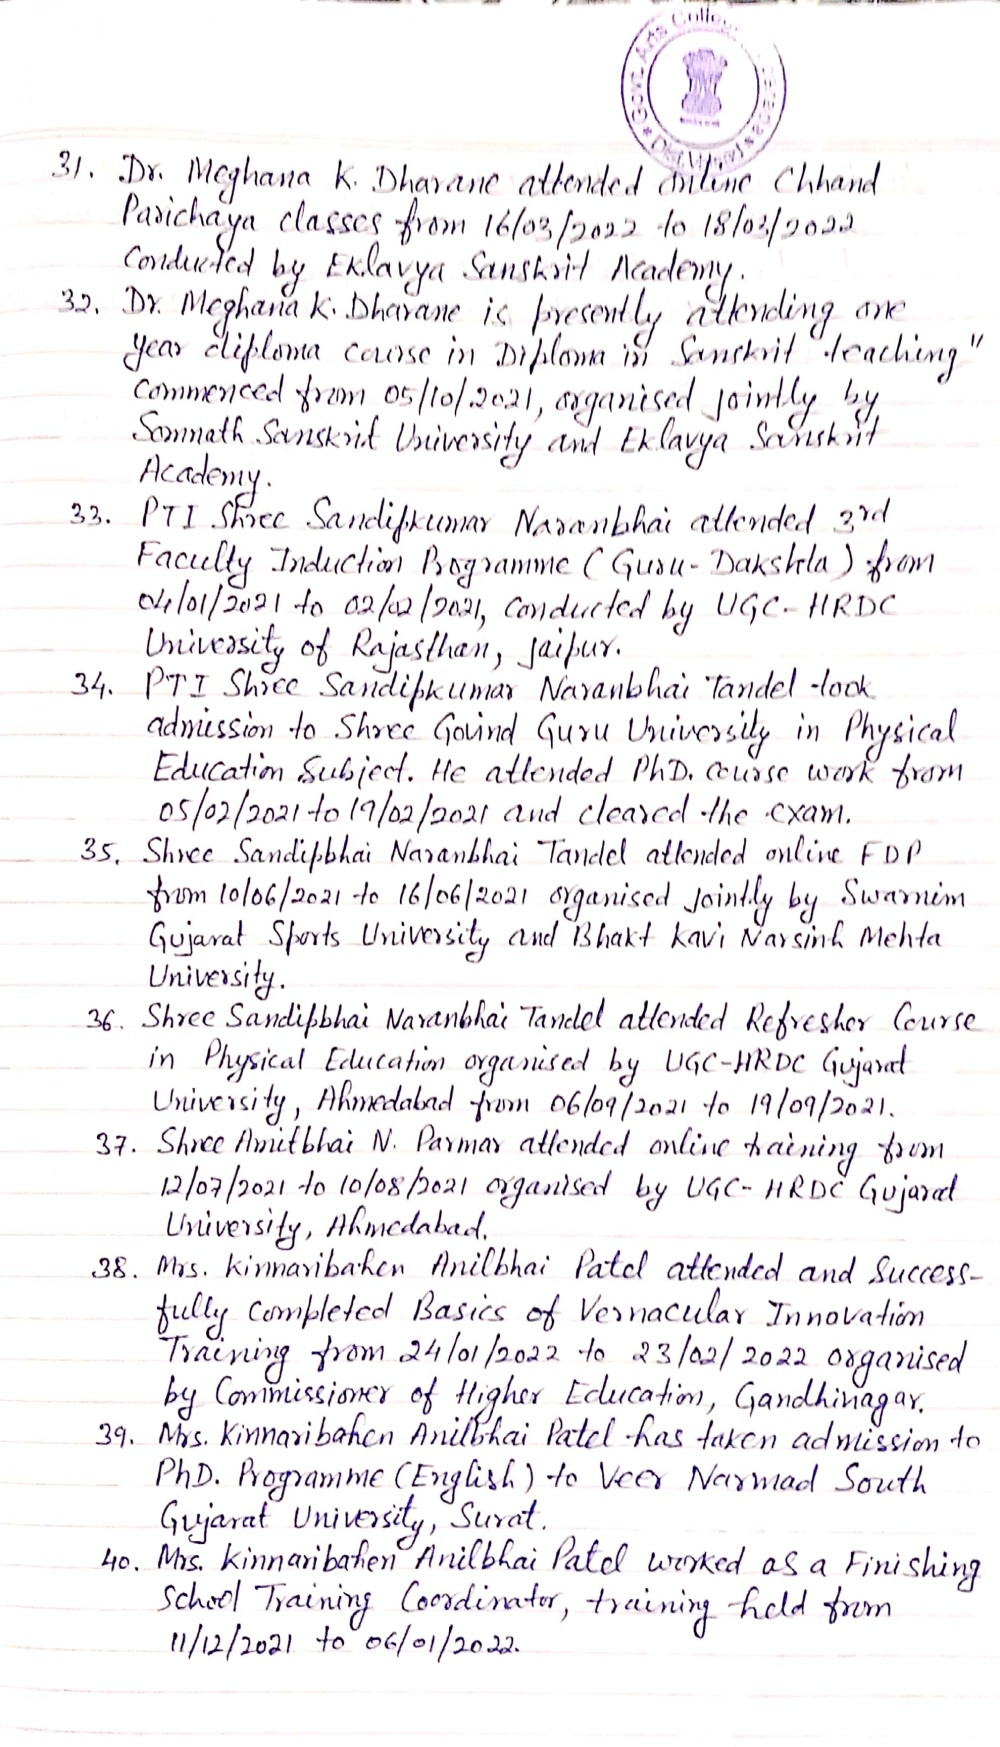 Govt. Arts College
Dist.
31. Dr. Meghana K. Dharane attended online Chhand
Parichaya classes from 16/03/2022 to 18/03/2022
Conducted by Eklavya Sanskrit Academy.
32. Dr. Meghana K. Dharane is presently attending one
year diploma course in Diploma in Sanskrit teaching"
Commenced from 05/10/2021, organised jointly by
Somnath Sanskrit University and Eklavya Sanskrit
Academy.
33. PTI Shree Sandipkumar Naranbhai attended 3rd
Faculty Induction Programme (Guru-Dakshta) from
04/01/2021 to 02/02/2021, conducted by UGC-HRDC
University of Rajasthan, Jaipur.
34. PTI Shree Sandipkumar Naranbhai Tandel took
admission to Shree Govind Guru University in Physical
Education Subject. He attended PhD. course work from
05/02/2021 to 19/02/2021 and cleared the exam.
35. Shree Sandipbhai Naranbhai Tandel attended online FDP
from 10/06/2021 to 16/06/2021 organised Jointly by Swarnim
Gujarat Sports University and Bhakt Kavi Narsinh Mehta
University.
36. Shree Sandipbhai Naranbhai Tandel attended Refresher Course
in Physical Education organised by UGC-HRDC Gujarat
University, Ahmedabad from 06/09/2021 to 19/09/2021.
37. Shree Amitbhai N. Parmar attended online training from
12/07/2021 to 10/08/2021 organised by UGC-HRDC Gujarat
University, Ahmedabad.
38. Mrs. Kinnaribahen Anilbhai Patel attended and Success-
fully Completed Basics of Vernacular Innovation
Training from 24/01/2022 to 23/02/2022 organised
by Commissioner of Higher Education, Gandhinagar.
39. Mrs. Kinnaribahen Anilbhai Patel has taken admission to
PhD. Programme (English) to Veer Narmad South
Gujarat University, Surat.
40. Mrs. Kinnaribahen Anilbhai Patel worked as a Finishing
School Training Coordinator, training held from
11/12/2021 to 06/01/2022.